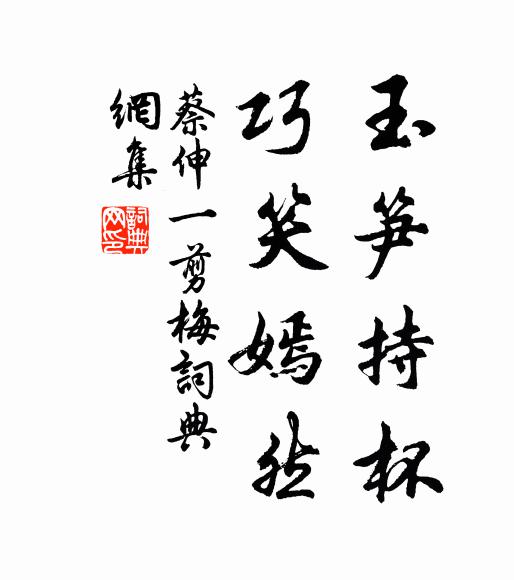 玉笋持杯
巧笑嫣然
蔡伸一剪梅詞典
網集
詞典
网印